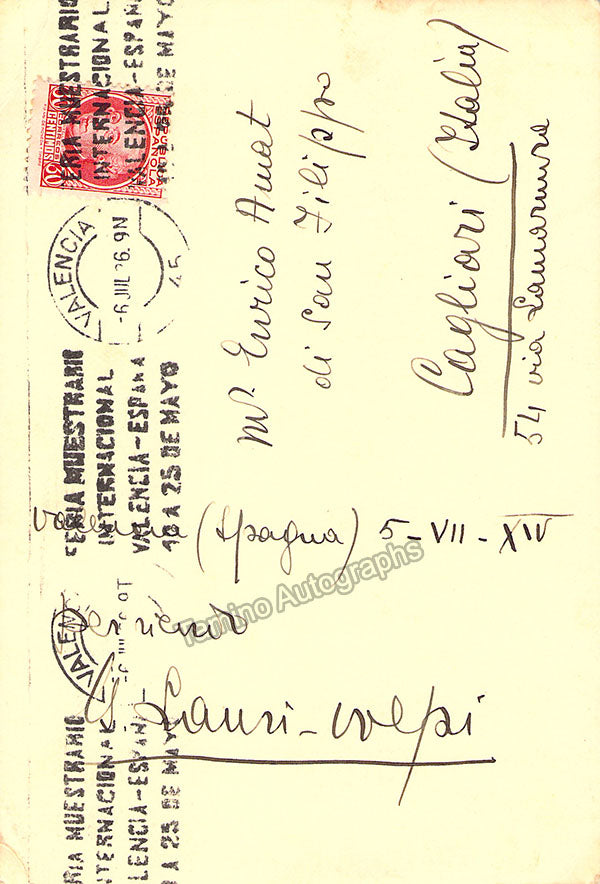 FERIA MUESTRARIO
INTERNACIONAL
VALENCIA-ESPAÑA
10 A 25 DE MAYO
30 CENTIMOS 30
CORREOS
REPUBLICA ESPAÑOLA
VALENCIA
-6 JUL 36. 9N
FERIA MUESTRARIO
INTERNACIONAL
VALENCIA-ESPAÑA
10 A 25 DE MAYO
VALENCIA
FERIA MUESTRARIO
INTERNACIONAL
VALENCIA-ESPAÑA
10 A 25 DE MAYO
Mr. Enrico Amat
di San Filippo
Cagliari (Italia)
54 via Lamarmora
Valencia (Spagna) 5-VII-XIV
G Lauri-Volpi
Tamino Autographs